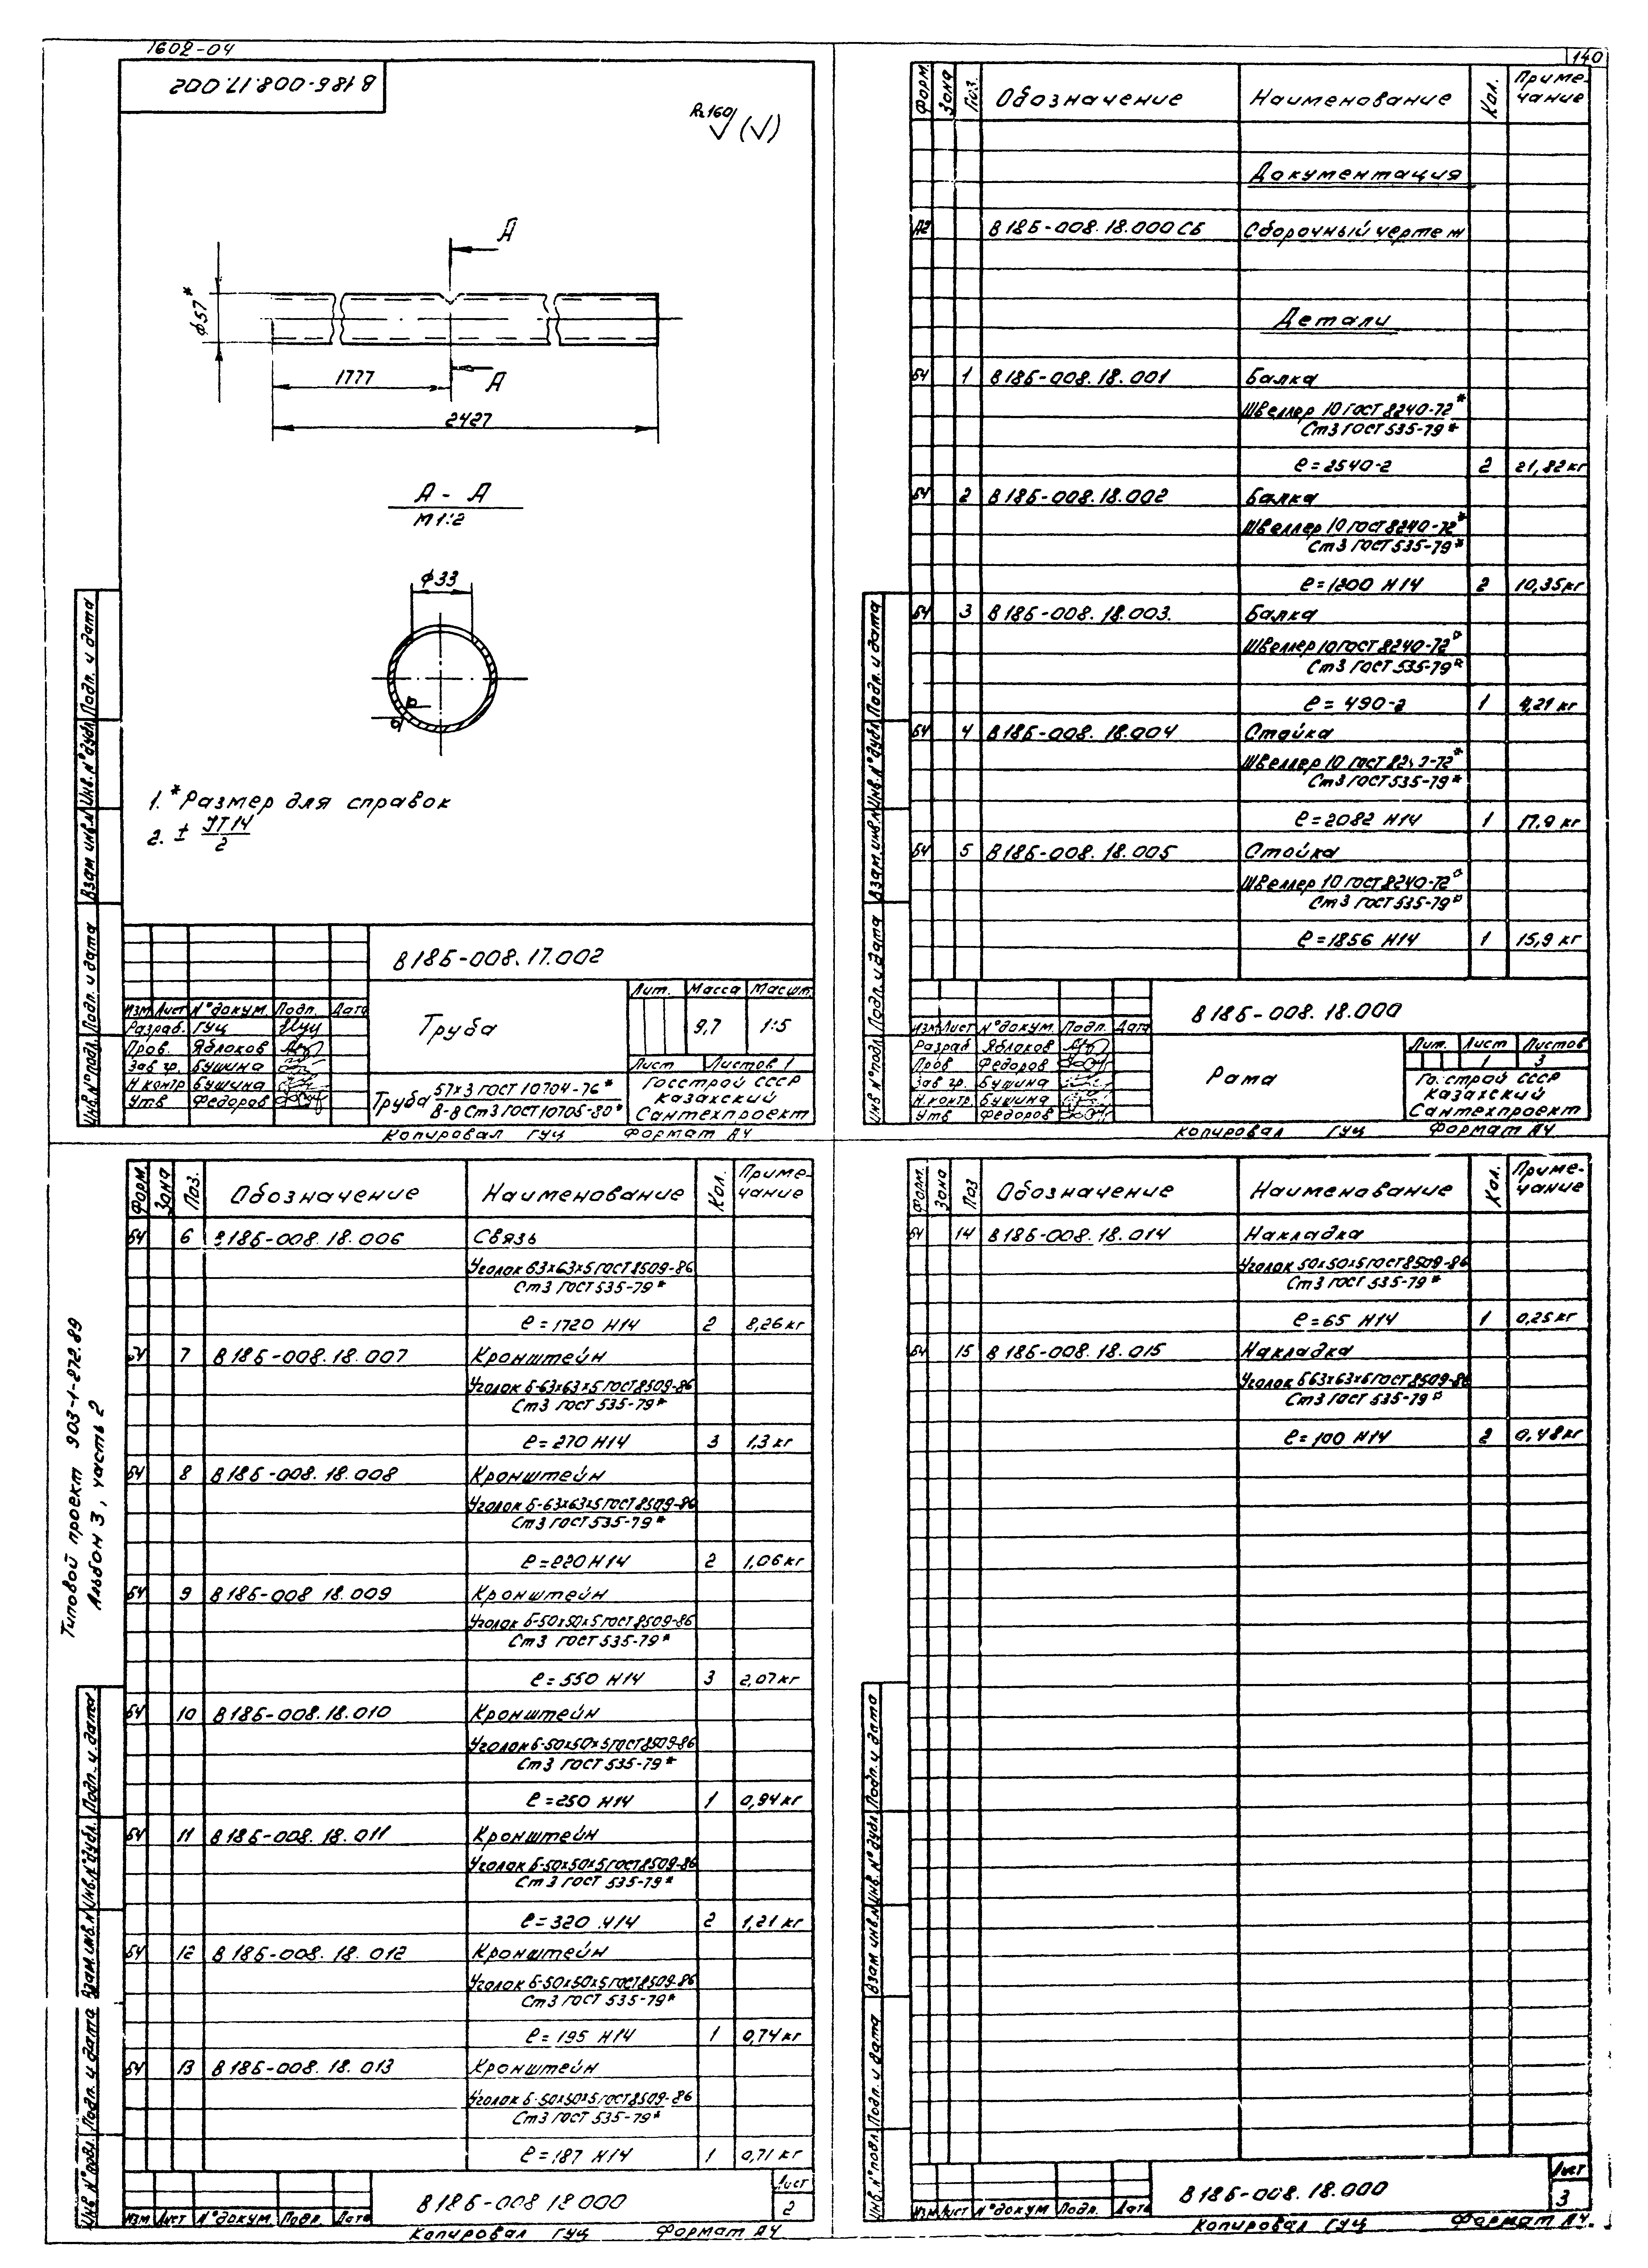 1602-04
140
В 18Б-008.17.002
Rz160 (√)
А
ф57*
1777
А
2427
А - А
М 1:2
ф33
1. *Размер для справок
2. ± JT14/2
В 18Б-008.17.002
Лит. Масса Масшт.
Изм. Лист N°докум. Подп. Дата
Разраб. ГУЦ
Труба
9,7 1:5
Пров. Яблоков
Зав гр. Бушина
Лист Листов 1
Н.контр Бушина
Утв Федоров
Труба 57х3 ГОСТ 10704-76*
В-8 Ст3 ГОСТ 10705-80*
Госстрой СССР
Казахский
Сантехпроект
Копировал ГУЦ Формат А4
Инв.N°подл. Подп. и дата Взам инв.N Инв.N°дубл. Подп. и дата
Форм. Зона Поз. Обозначение Наименование Кол. Примечание
Документация
А2 В 18Б-008.18.000 СБ Сборочный чертеж
Детали
БЧ 1 В 18Б-008.18.001 Балка
Швеллер 10 ГОСТ 8240-72*
Ст3 ГОСТ 535-79*
ℓ=2540-2 2 21,82 кг
БЧ 2 В 18Б-008.18.002 Балка
Швеллер 10 ГОСТ 8240-72*
Ст3 ГОСТ 535-79*
ℓ=1200 Н14 2 10,35 кг
БЧ 3 В 18Б-008.18.003. Балка
Швеллер 10 ГОСТ 8240-72*
Ст3 ГОСТ 535-79*
ℓ= 490-2 1 4,21 кг
БЧ 4 В 18Б-008.18.004 Стойка
Швеллер 10 ГОСТ 8240-72*
Ст3 ГОСТ 535-79*
ℓ=2082 Н14 1 17,9 кг
БЧ 5 В 18Б-008.18.005 Стойка
Швеллер 10 ГОСТ 8240-72*
Ст3 ГОСТ 535-79*
ℓ=1856 Н14 1 15,9 кг
В 18Б-008.18.000
Изм Лист N°докум. Подп. Дата
Разраб Яблоков
Пров Федоров
Зав гр. Бушина
Н.контр. Бушина
Утв Федоров
Рама
Лит. Лист Листов
1 3
Госстрой СССР
Казахский
Сантехпроект
Копировал ГУЦ Формат А4
Инв N°подл. Подп. и дата Взам.инв.N Инв.N°дубл. Подп. и дата
Типовой проект 903-1-272.89
Альбом 3, часть 2
Форм. Зона Поз. Обозначение Наименование Кол. Примечание
БЧ 6 В 18Б-008.18.006 Связь
Уголок 63х63х5 ГОСТ 8509-86
Ст3 ГОСТ 535-79*
ℓ=1720 Н14 2 8,26 кг
БЧ 7 В 18Б-008.18.007 Кронштейн
Уголок Б-63х63х5 ГОСТ 8509-86
Ст3 ГОСТ 535-79*
ℓ=270 Н14 3 1,3 кг
БЧ 8 В 18Б-008.18.008 Кронштейн
Уголок Б-63х63х5 ГОСТ 8509-86
Ст3 ГОСТ 535-79*
ℓ=220 Н14 2 1,06 кг
БЧ 9 В 18Б-008 18.009 Кронштейн
Уголок Б-50х50х5 ГОСТ 8509-86
Ст3 ГОСТ 535-79*
ℓ=550 Н14 3 2,07 кг
БЧ 10 В 18Б-008.18.010 Кронштейн
Уголок Б-50х50х5 ГОСТ 8509-86
Ст3 ГОСТ 535-79*
ℓ=250 Н14 1 0,94 кг
БЧ 11 В 18Б-008.18.011 Кронштейн
Уголок Б-50х50х5 ГОСТ 8509-86
Ст3 ГОСТ 535-79*
ℓ=320 Н14 2 1,21 кг
БЧ 12 В 18Б-008.18.012 Кронштейн
Уголок Б-50х50х5 ГОСТ 8509-86
Ст3 ГОСТ 535-79*
ℓ=195 Н14 1 0,74 кг
БЧ 13 В 18Б-008.18.013 Кронштейн
Уголок Б-50х50х5 ГОСТ 8509-86
Ст3 ГОСТ 535-79*
ℓ=187 Н14 1 0,71 кг
Изм Лист N°докум Подп. Дата
В 18Б-008 18.000
Лист
2
Копировал ГУЦ Формат А4
Инв N°подл. Подп. и дата Взам инв.N Инв.N°дубл. Подп. и дата
Форм. Зона Поз Обозначение Наименование Кол. Примечание
БЧ 14 В 18Б-008.18.014 Накладка
Уголок 50х50х5 ГОСТ 8509-86
Ст3 ГОСТ 535-79*
ℓ=65 Н14 1 0,25 кг
БЧ 15 В 18Б-008.18.015 Накладка
Уголок Б63х63х5 ГОСТ 8509-86
Ст3 ГОСТ 535-79*
ℓ=100 Н14 2 0,48 кг
Изм Лист N°докум Подп. Дата
В 18Б-008.18.000
Лист
3
Копировал ГУЦ Формат А4.
Инв.N°подл Подп. и дата Взам инв.N Инв.N°дубл Подп. и дата